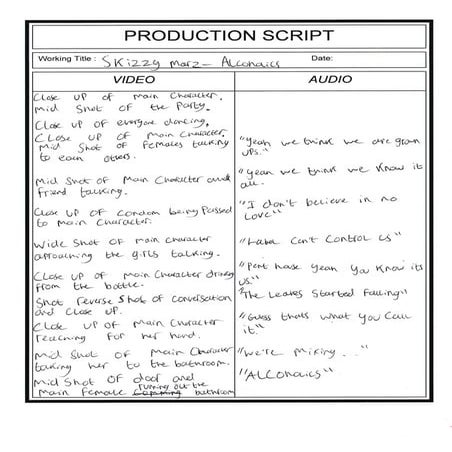 PRODUCTION SCRIPT
Working Title : Skizzy marz - Alcoholics Date:
VIDEO AUDIO
Close up of main Character.
Mid Shot of the Party.
Close up of everyone dancing.
Close up of main Character
Mid Shot of females talking
to each others.
"yeah we think we are grown
ups."
Mid Shot of Main Character and
friend talking.
"yeah we think we know it
all.
Close up of condom being passed
to main Character.
"I don't believe in no
love"
Wide Shot of main Character
approaching the girls talking.
"Label Can't Control us"
Close up of main Character drinking
from the bottle.
"Pent house yeah you know its
us."
Shot reverse Shot of conversation
and Close up.
"The Leaves Started Falling"
Close up of Main Character
reaching for her hand.
"Guess thats what you Call
it."
Mid Shot of main Character
taking her to the bathroom.
"we're mixing..."
Mid Shot of door and
main female running out the bathroom
"Alcoholics"